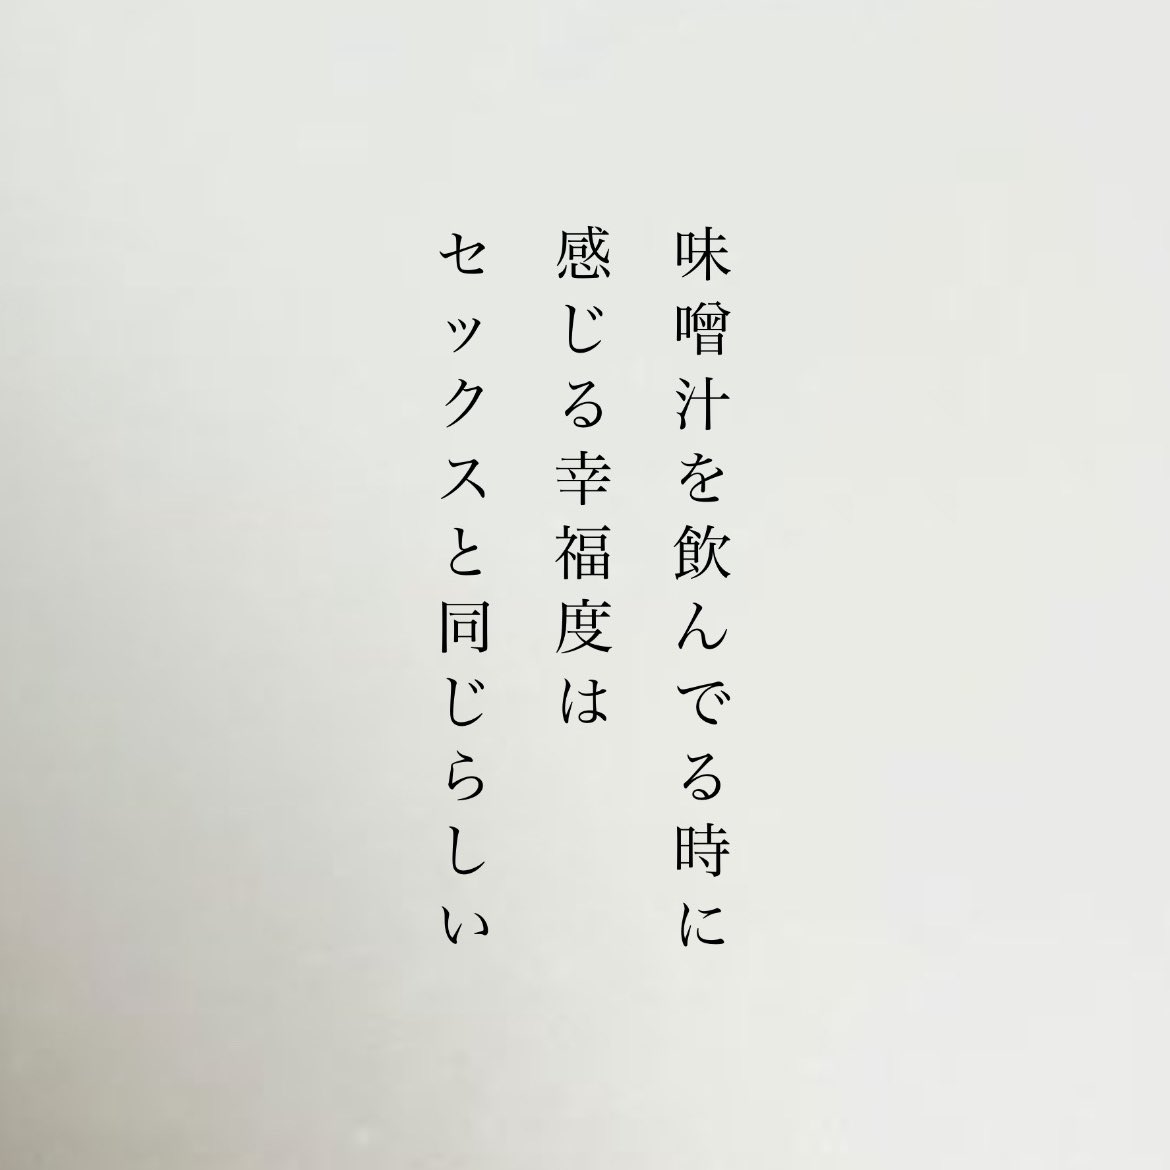 味噌汁を飲んでる時に
感じる幸福度は
セックスと同じらしい